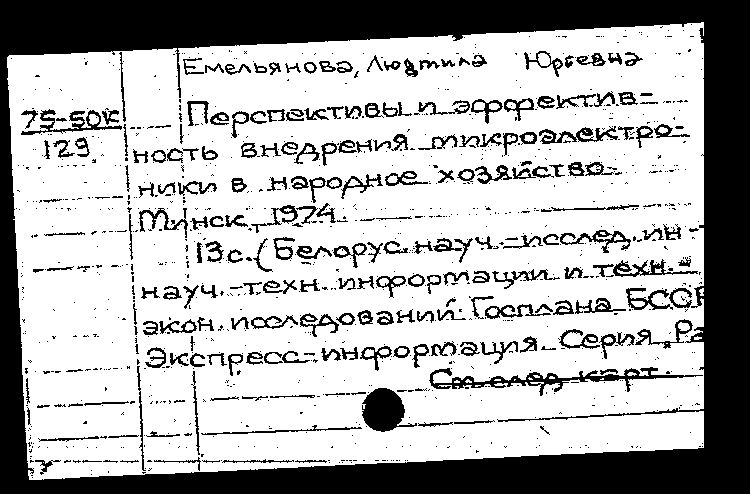 Емельянова, Людмила Юрьевна
75-50к
129
Перспективы и эффектив-
ность внедрения микроэлектро-
ники в народное хозяйство.
Минск, 1974.
13с. (Белорус. науч.-исслед. ин-
науч.-техн. информации и техн.-
экон. исследований Госплана БССР
Экспресс-информация. Серия „Ра
См. след. карт.